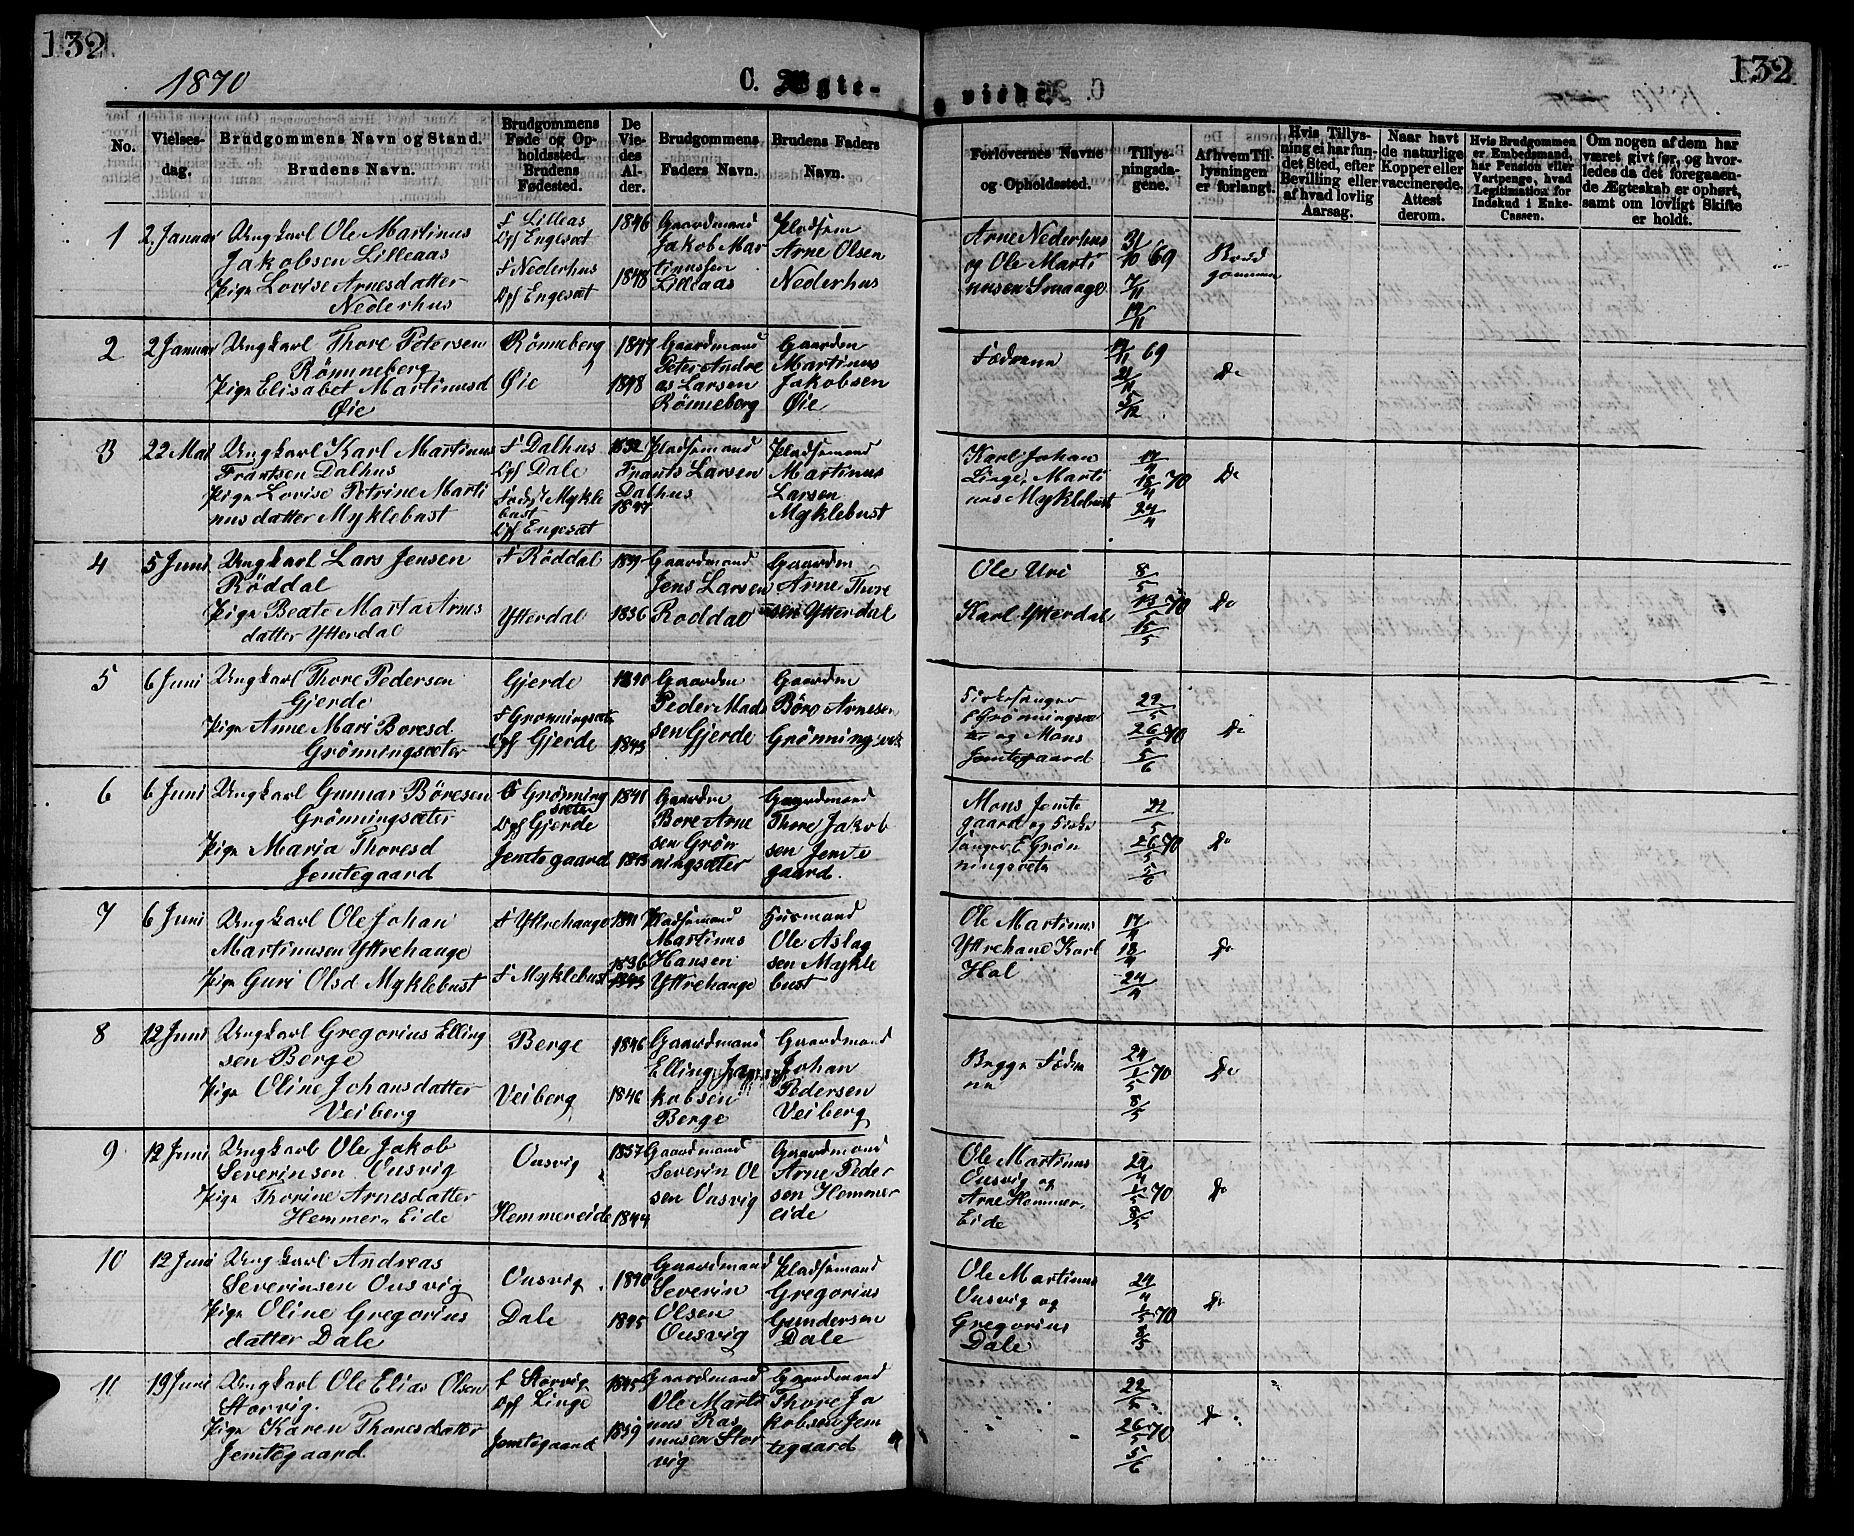 132
1870
C. Ægte-
viede.
132
No.
Vielses-
dag.
Brudgommens Navn og Stand.
Brudens Navn.
Brudgommens
Føde og Op-
holdssted.
Brudens
Fødested.
De
Vie-
des
Al-
der.
Brudgommens
Faders Navn.
Brudens Faders
Navn.
Forlovernes Navne
og Opholdssted.
Tillys-
ningsda-
gene.
Af hvem Til-
lysningen
er forlangt.
Hvis Tillys-
ning ei har fun-
det Sted, efter
Bevilling eller
af hvad lovlig
Aarsag.
Naar havt
de naturlige
Kopper eller
vaccinerede.
Attest
derom.
Hvis Brudgommen
er Embedsmand,
har Pension eller
Vartpenge, hvad
Legitimation for
Indskud i Enke-
Cassen.
Om nogen af dem har
været givt før, og hvor-
ledes da det foregaaen-
de Ægteskab er ophørt,
samt om lovligt Skifte
er holdt.
1
2. Januar
Ungkarl Ole Martinus
Jakobsen Lilleaas
Pige Lovise Arnesdatter
Nederhus
F Lilleas
Opf Engesæt
F Nederhus
Opf Engesæt
1846
1848
Gaardmand
Jakob Mar
tinussen
Lilleaas
Pladsem
Arne Olsen
Nederhus
Arne Nederhus
og Ole Marti
nusen Smaage
31/10 69
7/11
14/11
Brud
gommen
2
2 Januar
Ungkarl Thore Petersen
Rønneberg
Pige Elisabet Martinusd
Øie
Rønneberg
Øie
1847
1848
Gaardmand
Peter Andre
as Larsen
Rønneberg
Gaardm
Martinus
Jakobsen
Øie
Fædrene
14/11 69
21/11
5/12
Do
3
22 Mai
Ungkarl Karl Martinus
Frantsen Dalhus
Pige Lovise Petrine Marti
nusdatter Myklebust
F Dalhus
Opf Dale
Født Mykle
bust
Opf Engesæt
1832
1847
Pladsemand
Frants Larsen
Dalhus
Pladsemand
Martinus
Larsen
Myklebust
Karl Johan
Linge, Marti
nus Myklebust
17/4
18/4 70
24/4
Do
4
5 Juni
Ungkarl Lars Jensen
Røddal
Pige Beate Marta Arnes
datter Ytterdal
F Røddal
Ytterdal
1836
Gaardmand
Jens Larsen
Røddal
Gaardm
Arne Thore
sen Ytterdal
Ole Uri
Karl Ytterdal
8/5
13/5 70
15/5
Do
5
6 Juni
Ungkarl Thore Pedersen
Gjerde
Pige Anne Mari Boresd
Grønningsæter
Gjerde
F Grønningsæter
Opf Gjerde
1840
1843
Gaardm
Peder Mad
sen Gjerde
Gaardm
Børe Arnesen
Grønningsæt
Kirkesanger
E Grønningsæ
ter og Mons
Jemtegaard
22/5
26/5 70
5/6
Do
6
6 Juni
Ungkarl Gunnar Børesen
Grønningsæter
Pige Marja Thoresd
Jemtegaard
F Grønning
sæter
Opf Gjerde
Jemtegaard
1841
1843
Gaardm
Bore Arne
sen Grøn
ningsæter
Gaardmand
Thore Jakob
sen Jemte
gaard.
Mons Jemte
gaard og Kirke
sanger E Grøn
ningsæte
22/5
26/5 70
5/6
Do
7
6 Juni
Ungkarl Ole Johan
Martinusen Yttrehauge
Pige Guri Olsd Myklebust
F Yttrehauge
F Myklebust
1841
1836
1843
Pladsemand
Martinus
Hansen
Yttrehauge
Husmand
Ole Aslag
sen Mykle
bust
Ole Martinus
Yttrehaue Karl
Hol
17/4
18/4
24/4
Do
8
12 Juni
Ungkarl Gregorius Elling
sen Berge
Pige Oline Johansdatter
Veiberg
Berge
Veiberg
1846
1846
Gaardmand
Elling Ja
kobsen
Berge
Gaardmand
Johan
Pedersen
Veiberg
Begge Fædre
ne
24/4
1/5 70
8/5
Do
9
12 Juni
Ungkarl Ole Jakob
Severinsen Ousvig
Pige Thorine Arnesdatter
Hemmer-Eide
Ousvig
Hemmereide
1837
1844
Gaardmand
Severin Ol
sen Ousvig
Gaardmand
Arne Peder
sen Hemmer
eide
Ole Martinus
Ousvig og
Arne Hemmer-
Eide
24/4
1/5 70
8/5
Do
10
12 Juni
Ungkarl Andreas
Severinsen Ousvig
Pige Oline Gregorius
datter Dale
Ousvig
Dale
1840
1845
Gaardmand
Severin
Olsen
Ousvig
Pladsemand
Gregorius
Gundersen
Dale
Ole Martinus
Ousvig og
Gregorius
Dale
24/4
1/5 70
8/5
Do
11
19 Juni
Ungkarl Ole Elias Olsen
Storvig.
Pige Karen Thoresdatter
Jemtegaard
F Storvig
Opf Linge
Jemtegaard
1845
1839
Gaardmand
Ole Marti
nus Ras
mussen Stor
vig
Gaardmand
Thore Ja
kobsen Jem
tegaard
22/5
26/5 70
5/6
Do